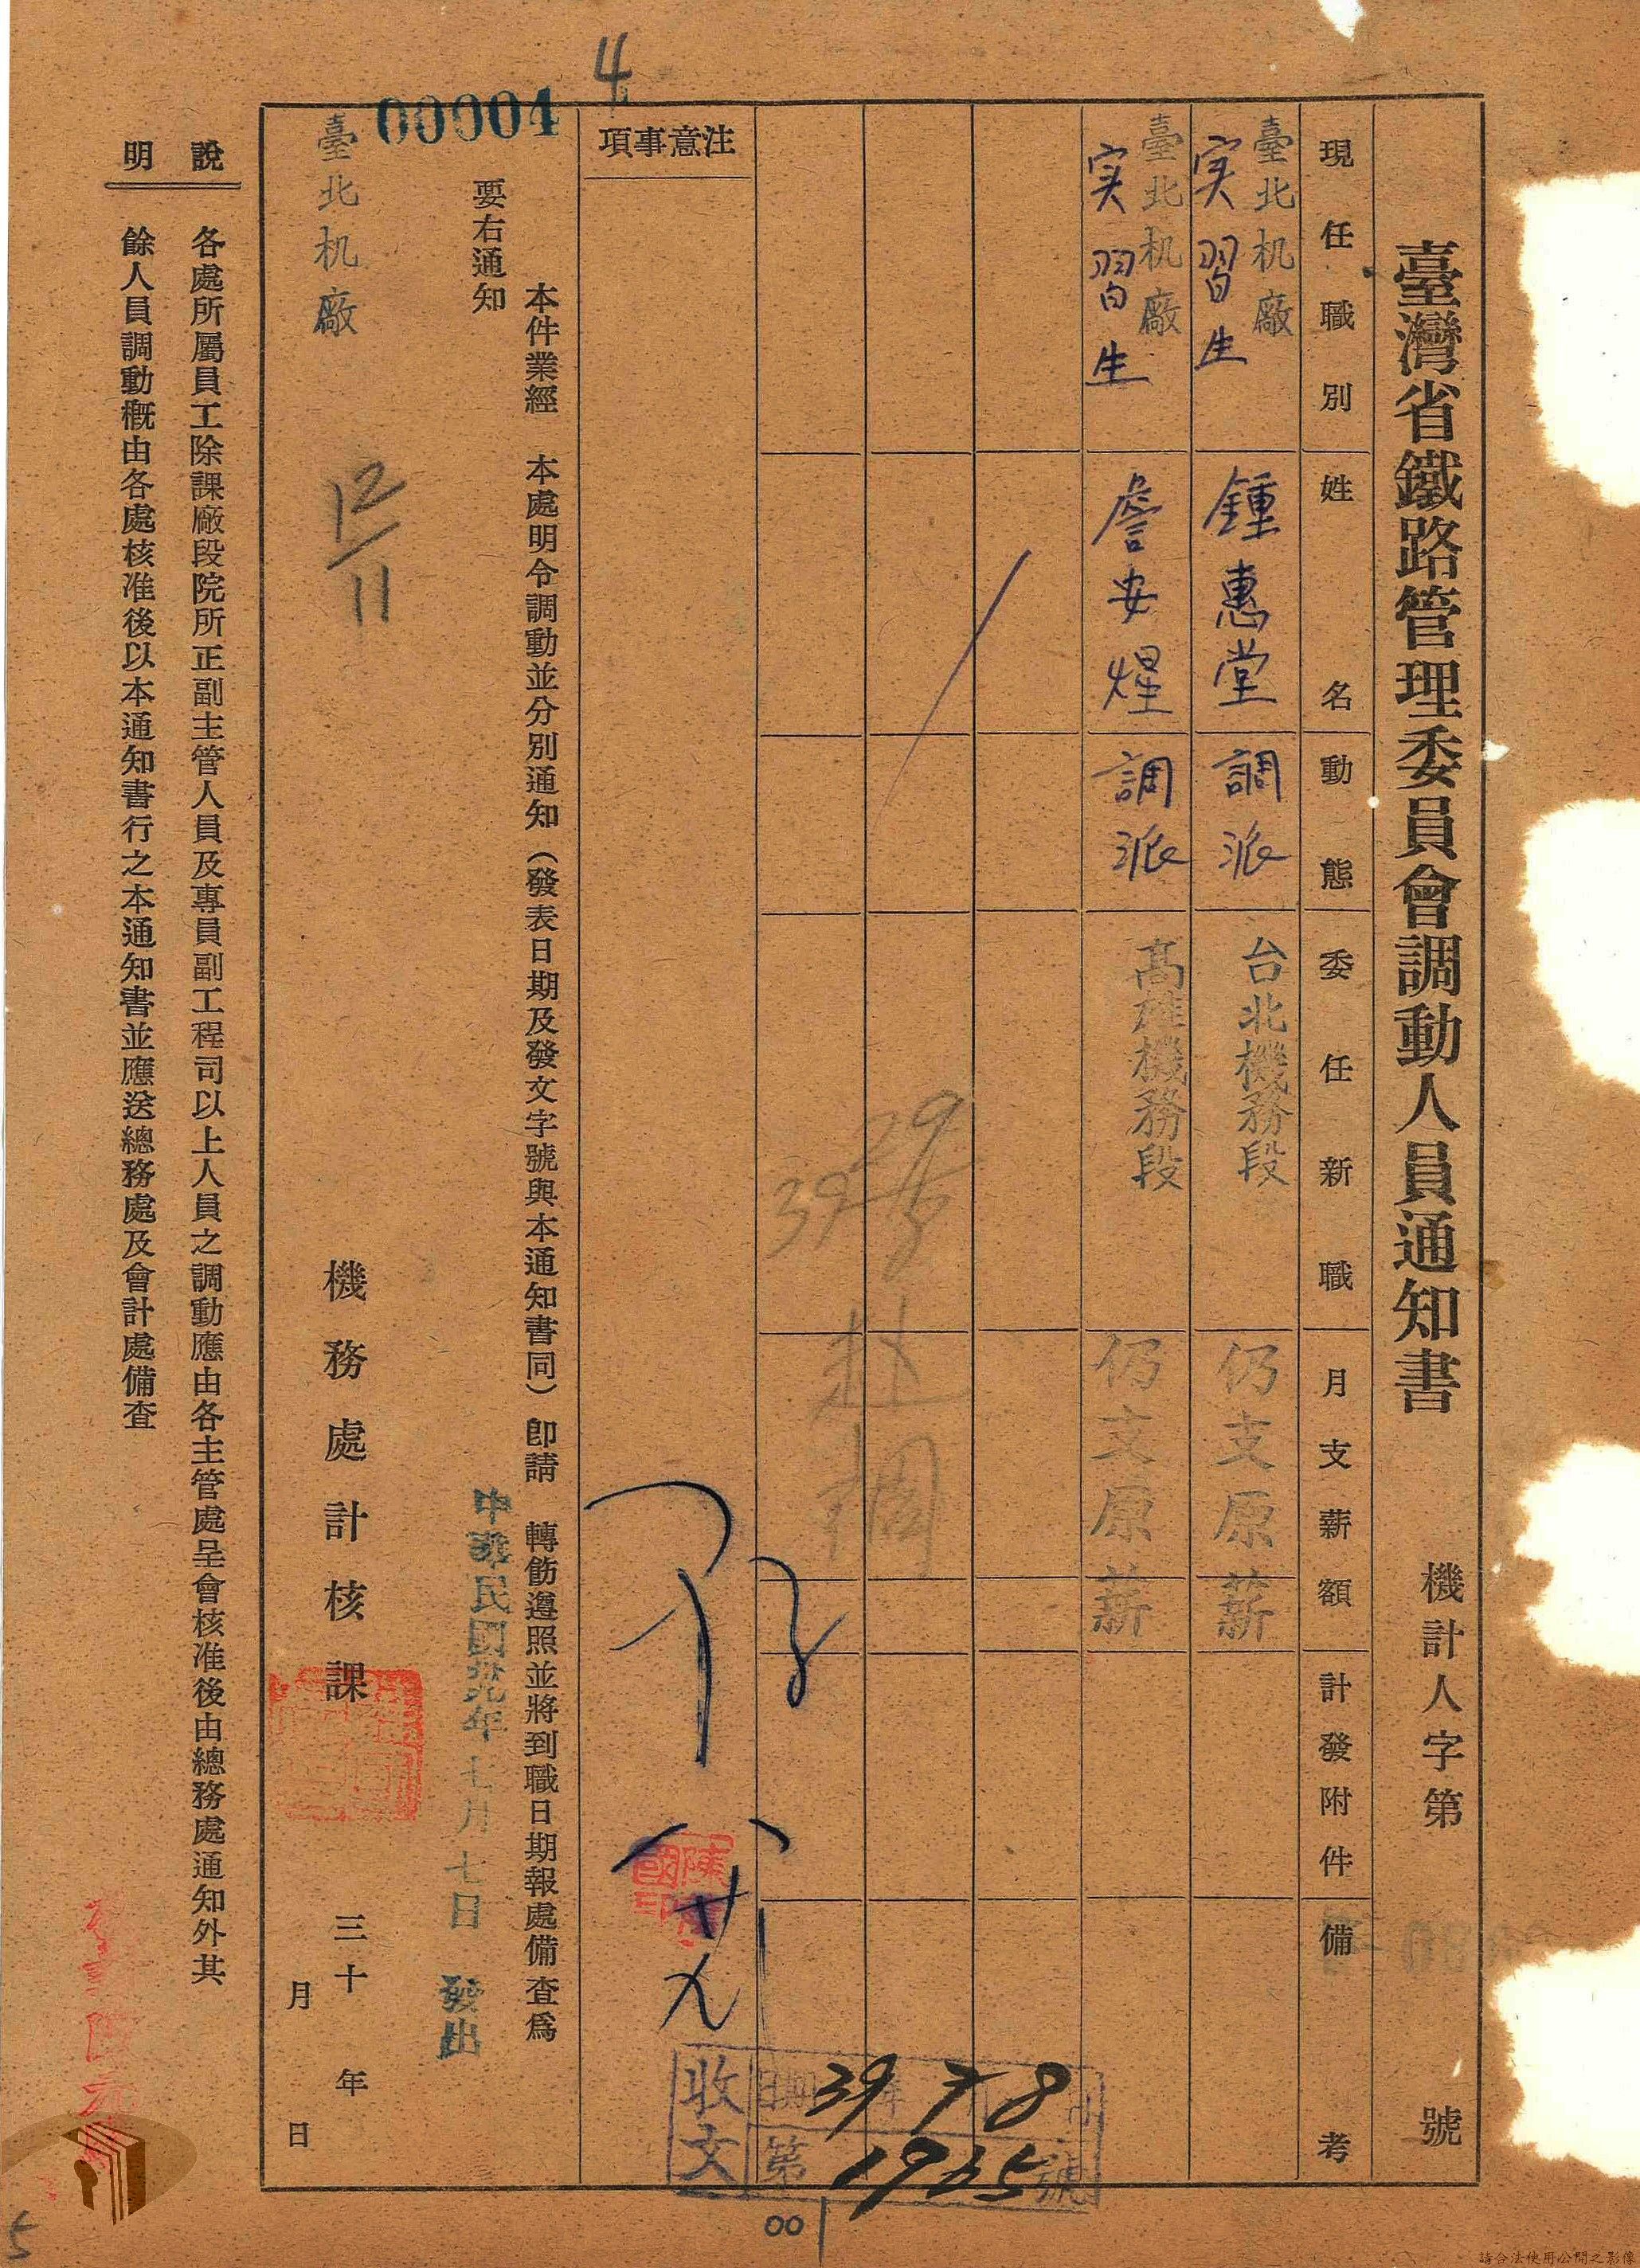 臺灣省鐵路管理委員會調動人員通知書
機計人字第 號
現任職別 姓名 動態 委任新職 月支薪額 計發附件 備考
臺北机廠 实習生 鍾惠堂 調派 台北機務段 仍支原薪
臺北机廠 实習生 詹安煋 調派 高雄機務段 仍支原薪
39 29/5 赴調
注意事項
本件業經 本處明令調動並分別通知(發表日期及發文字號與本通知書同)卽請 轉飭遵照並將到職日期報處備查爲
要右通知
中華民國卅九年七月七日 發出
臺北机廠
機務處計核課
三十 年
月 日
12/11
00004
4
收文 日期 39 7 8
第 1925 號
001
說明
各處所屬員工除課廠段院所正副主管人員及專員副工程司以上人員之調動應由各主管處呈會核准後由總務處通知外其
餘人員調動概由各處核准後以本通知書行之本通知書並應送總務處及會計處備查
5
請合法使用公開之影像